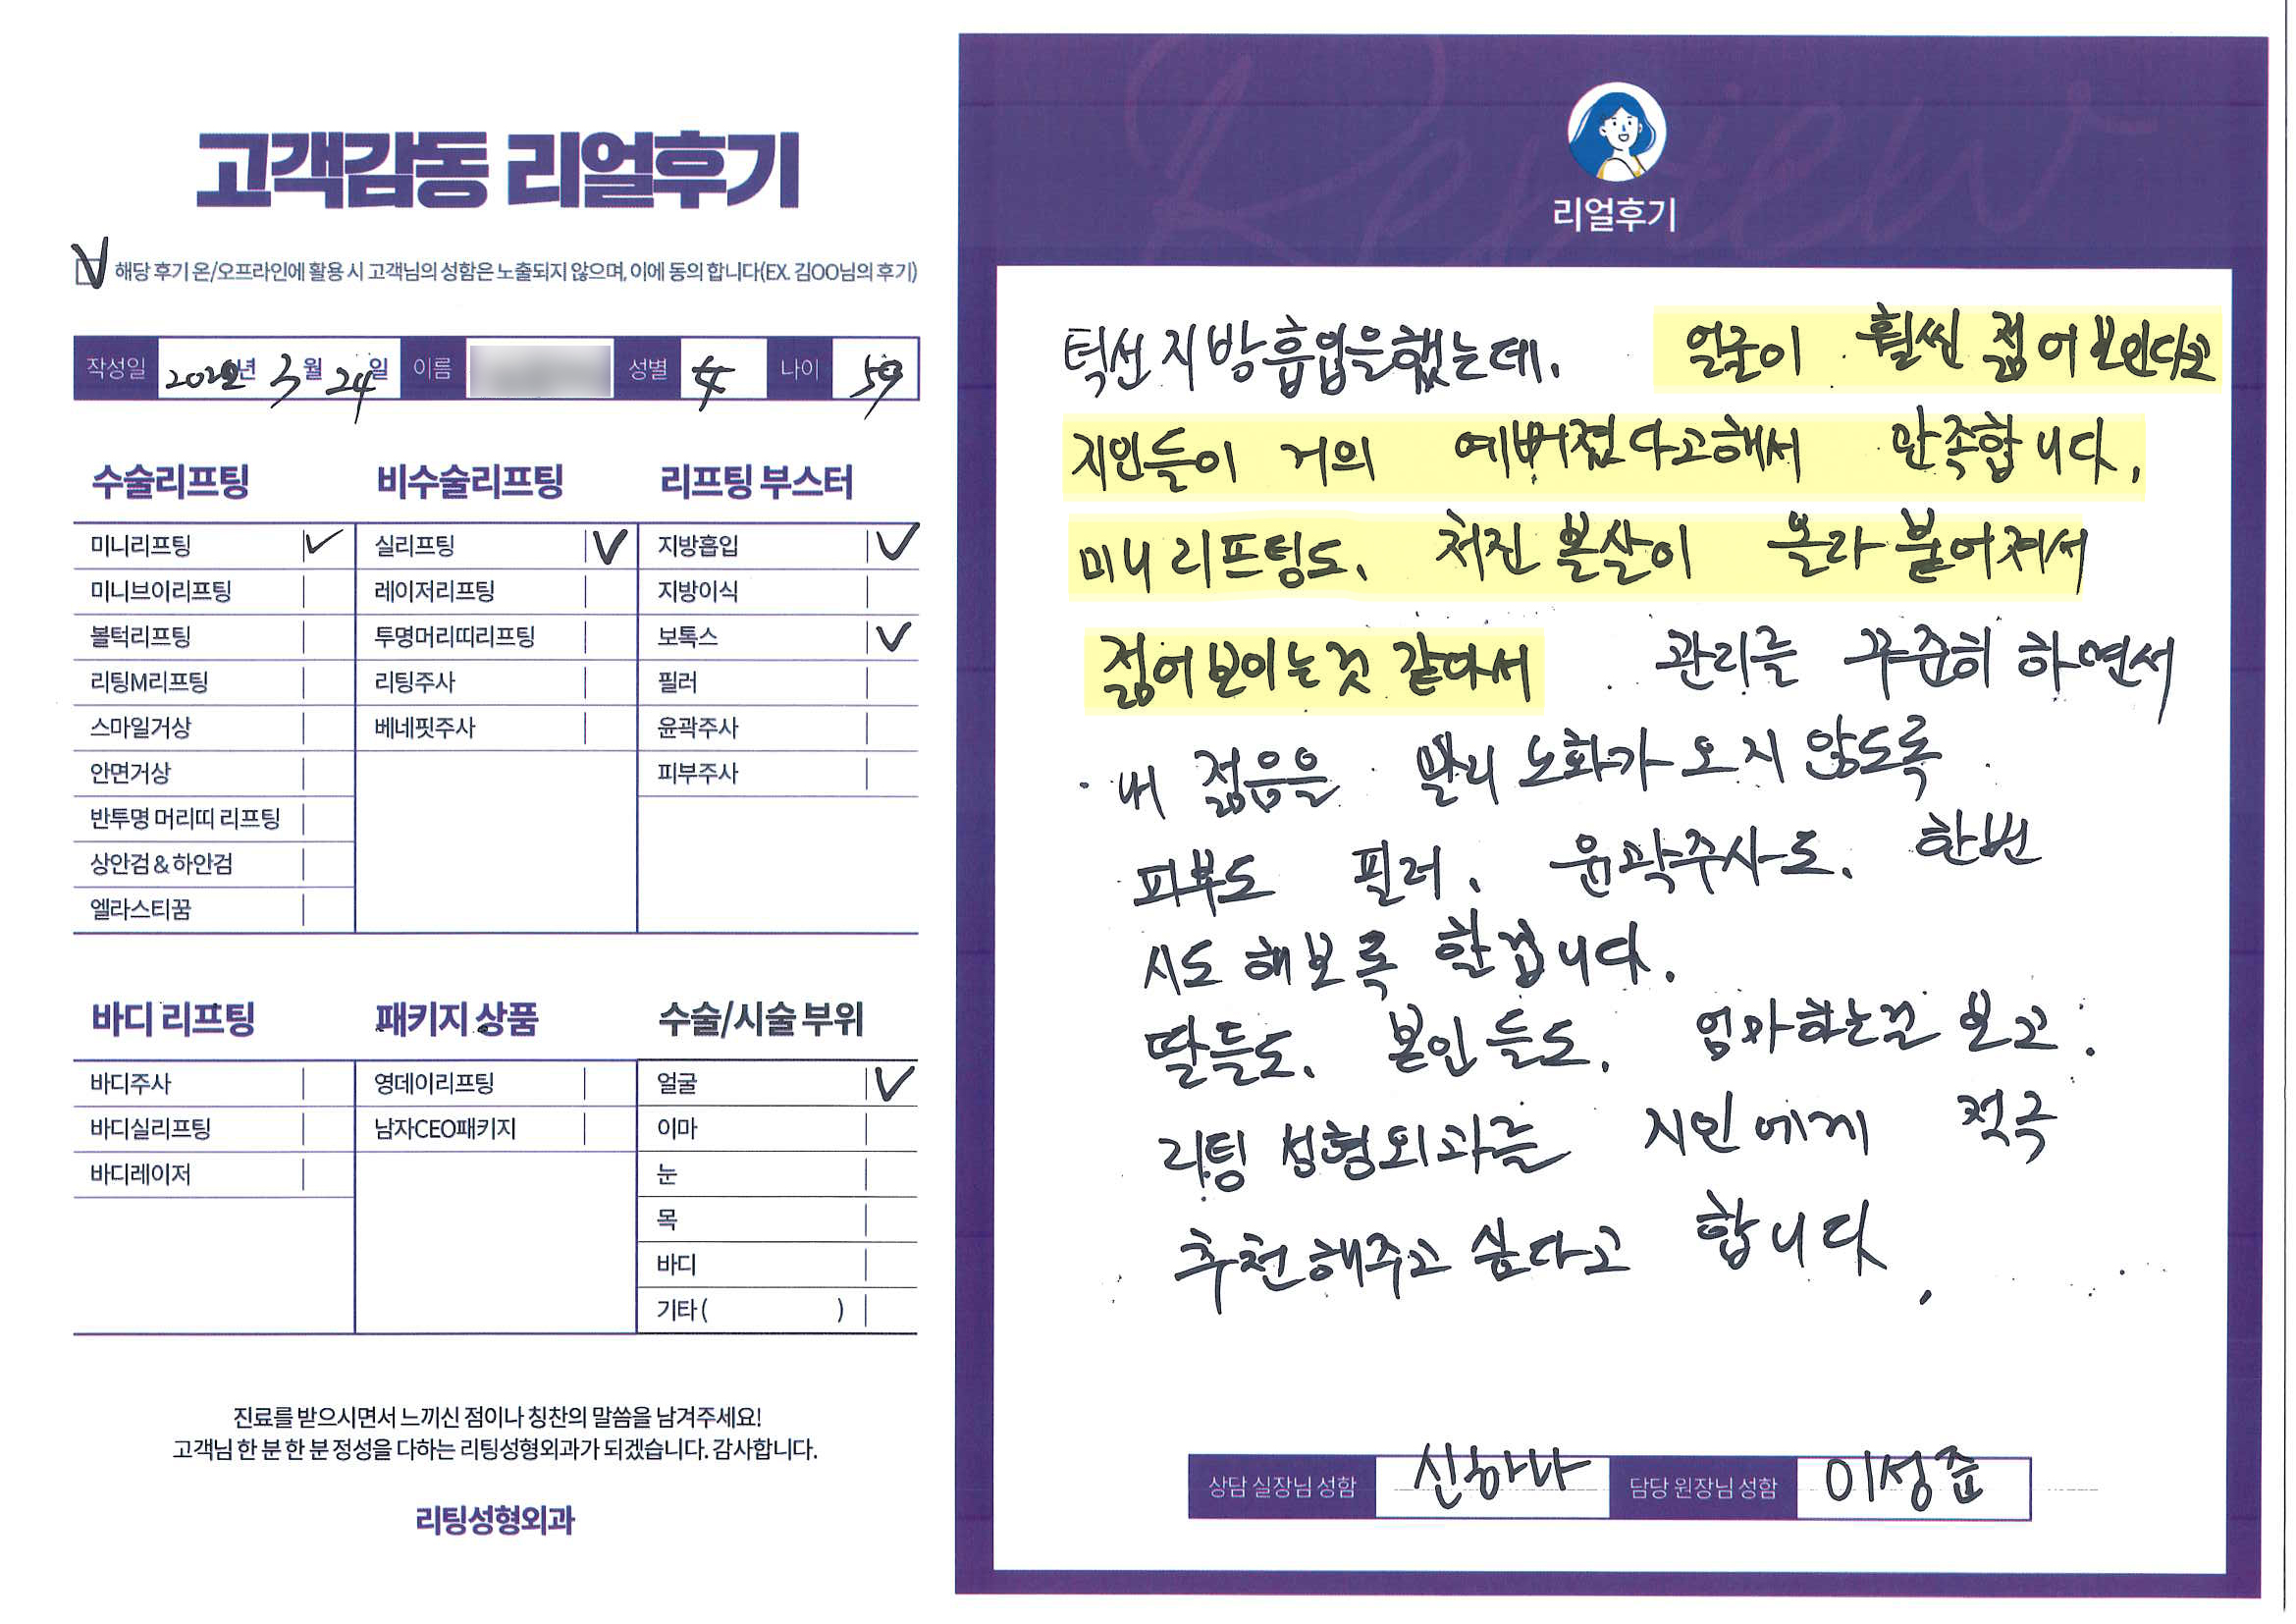 고객감동 리얼후기
해당 후기 온/오프라인에 활용 시 고객님의 성함은 노출되지 않으며, 이에 동의 합니다(EX. 김OO님의 후기)
작성일 2022년 3월 24일 이름 성별 나이 59
수술리프팅
미니리프팅
미니브이리프팅
볼턱리프팅
리팅M리프팅
스마일거상
안면거상
반투명 머리띠 리프팅
상안검 & 하안검
엘라스티꿈
비수술리프팅
실리프팅
레이저리프팅
투명머리띠리프팅
리팅주사
베네핏주사
리프팅 부스터
지방흡입
지방이식
보톡스
필러
윤곽주사
피부주사
바디 리프팅
바디주사
바디실리프팅
바디레이저
패키지 상품
영데이리프팅
남자CEO패키지
수술/시술 부위
얼굴
이마
눈
목
바디
기타 ( )
진료를 받으시면서 느끼신 점이나 칭찬의 말씀을 남겨주세요!
고객님 한 분 한 분 정성을 다하는 리팅성형외과가 되겠습니다. 감사합니다.
리팅성형외과
Review
리얼후기
턱선 지방흡입을했는데. 얼굴이 훨씬 젊어보인다고
지인들이 거의 예뻐졌다고해서 만족합니다.
미니 리프팅도. 처진 볼살이 올라 붙어져서
젊어 보이는것 같아서 관리를 꾸준히 하면서
내 젊음을 빨리 노화가 오지 않도록
피부도 필러. 윤곽주사도. 한번
시도 해보록 할겁니다.
딸들도. 본인들도. 엄마하는걸 보고.
리팅 성형외과를 지인에게 적극
추천해주고 싶다고 합니다.
상담 실장님 성함 신하나 담당 원장님 성함 이성준